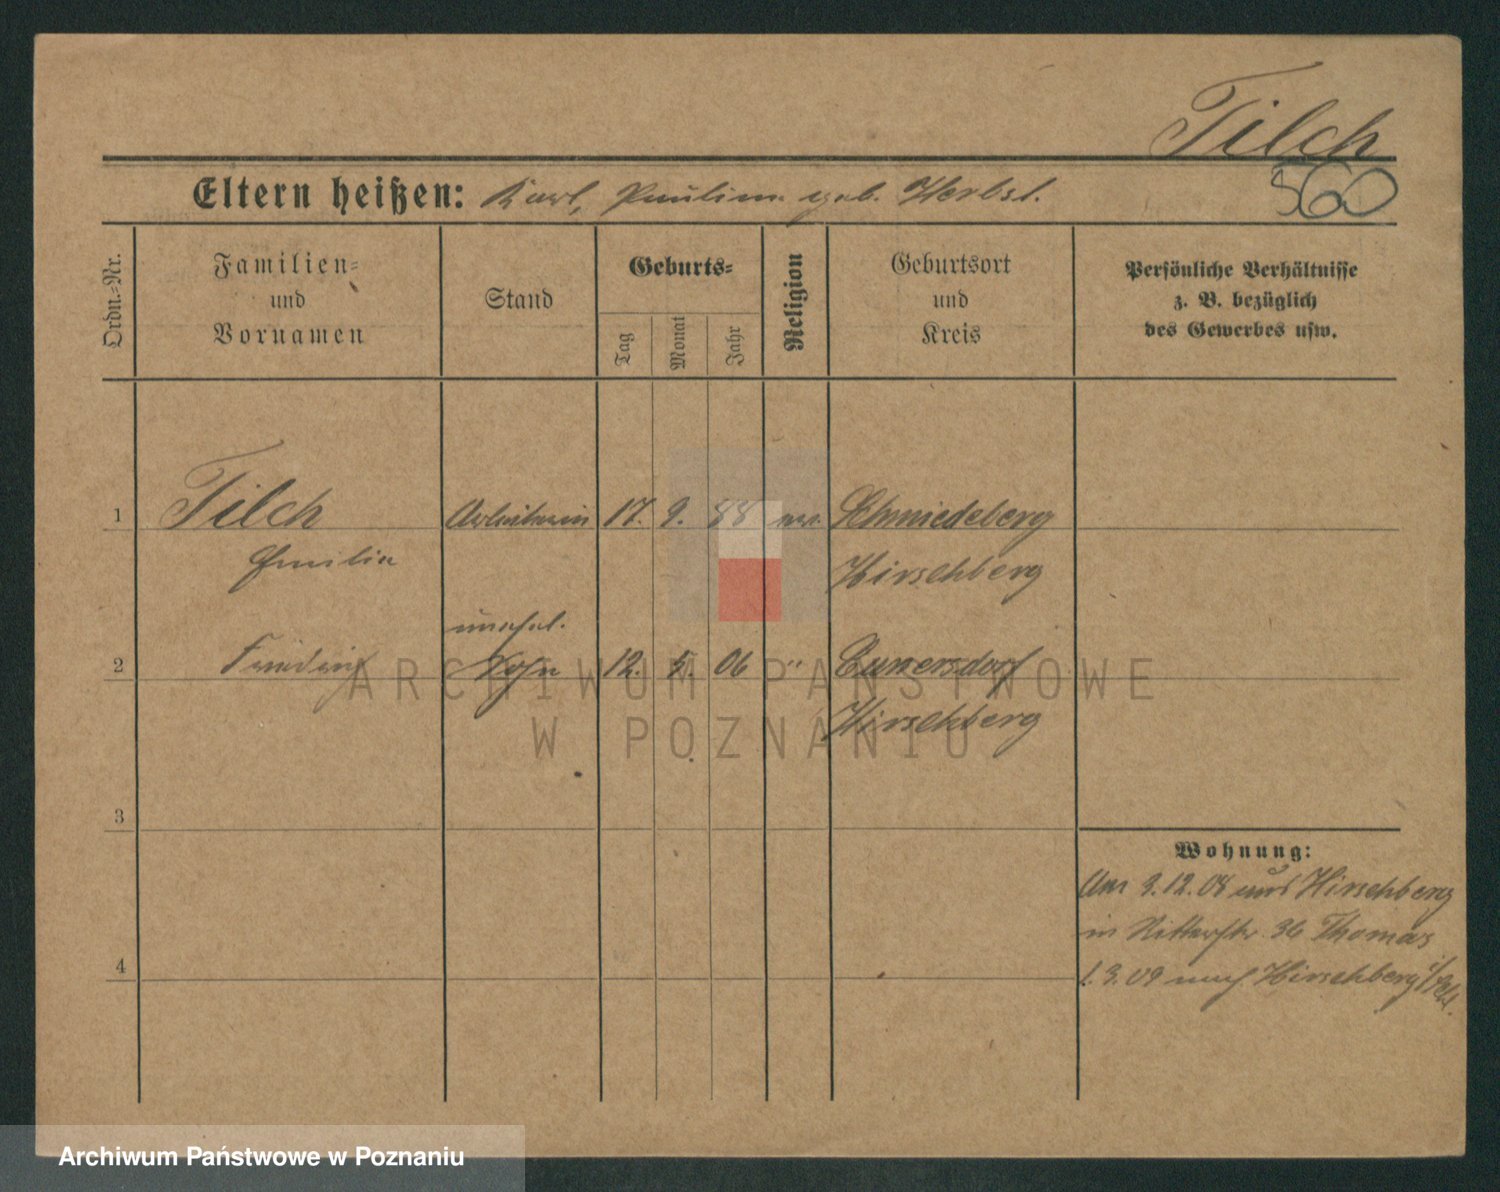 Tilch
560
Eltern heißen: Karl, Pauline geb. Herbst.
Ordn.-Nr.
Familien-
und
Vornamen
Stand
Geburts-
Tag
Monat
Jahr
Religion
Geburtsort
und
Kreis
Persönliche Verhältnisse
z. B. bezüglich
des Gewerbes usw.
1 Tilch Arbeiterin 17. 9. 88 Schmiedeberg
Emilie Hirschberg
unehel.
2 Friedrich Sohn 12. 5. 06 " Cunersdorf
Hirschberg
3
Wohnung:
Am 3.12.08 aus Hirschberg
in Ritterstr. 36 Thomas
4
1.3.09 nach Hirschberg i/Schl.
ARCHIWUM PAŃSTWOWE
W POZNANIU
Archiwum Państwowe w Poznaniu